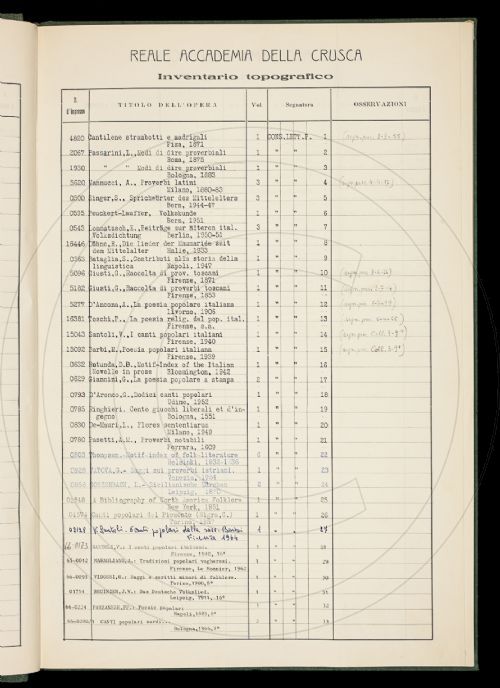 REALE ACCADEMIA DELLA CRUSCA
Inventario topografico
N. d'ingresso TITOLO DELL'OPERA Vol. Segnatura OSSERVAZIONI
4820 Cantilene strambotti e madrigali 1 CONS.LETT.P. 1
Pisa, 1871
2067 Passarini,L., Modi di dire proverbiali 1 " " 2
Roma, 1875
1930 " " Modi di dire proverbiali 1 " " 3
Bologna, 1883
5620 Vannucci, A., Proverbi latini 3 " " 4
Milano, 1880-83
0500 Singer,S., Sprichwörter des Mittelalters 3 " " 5
Bern, 1944-47
0535 Peuckert-Lauffer, Volkskunde 1 " " 6
Bern, 1951
0543 Lommatzsch,E., Beiträge zur älteren ital. 3 " " 7
Volksdichtung Berlin, 1950-51
16446 die lieder der seit 1 " " 8
dem Mittelalter Halle, 1933
0363 Bataglia,S., Contributi alla storia della 1 " " 9
linguistica Napoli, 1947
5096 Giusti,G., Raccolta di prov. toscani 1 " " 10
Firenze, 1871
5182 Giusti,G., Raccolta de proverbi toscani 1 " " 11
Firenze, 1853
5277 D'Ancona,A., La poesia popolare italiana 1 " " 12
Livorno, 1906
16381 Toschi,P., La poesia relig. del pop. ital. 1 " " 13
Firenze, s.a.
15043 Santoli,V., I canti popolari italiani 1 " " 14
Firenze, 1940
15092 Barbi,M., Poesia popolare italiana 1 " " 15
Firenze, 1939
0632 Rotunda,D.P., Motif-Index of the Italian 1 " " 16
Novelle in prose Bloomington, 1942
0629 Giannini,G., La poesia popolare a stampa 2 " " 17
0793 D'Aronco,G., Dodici canti popolari 1 " " 18
Udine, 1952
0785 Ringhieri, Cento giuochi liberali et d'in- 1 " " 19
gegno Bologna, 1551
0830 De-Mauri,L., Flores sententiarum 1 " " 20
Milano, 1949
0780 Pasetti,A.M., Proverbi notabili 1 " " 21
Ferrara, 1609
0803 Thompson, Motif-index of folk literature 6 " " 22
Helsinki, 1932-1936
VATOVA,G.- Saggi sui proverbi istriani. 1 " " 23
Venezia, 1954
GONZENBACH, L.- Sicilianische Märchen 2 " " 24
Leipzig, 1870
A Bibliography of North America Folklore 1 " " 25
New York, 1951
Canti popolari del Piemonte (Nigra,C.) 1 " " 26
Torino
V. Santoli. Canti popolari della racc. Barbi 1 " " 27
Firenze 1964
I canti popolari italiani. 1 " " 28
Firenze, 1940, 16°
65-0042 Tradizioni popolari vogheresi. 1 " " 29
Firenze, Le Monnier, 1962
VIDOSSI,G.: Saggi e scritti minori di folklore. 1 " " 30
Torino, 1960, 8°
01754 BRUINIER,J.W.: Das Deutsche Volkslied. 1 " " 31
Leipzig, 1911, 16°
66-0224 Poesie popolar 1 " " 32
Napoli
CANTI popolari sardi... 2 " " 33
Bologna